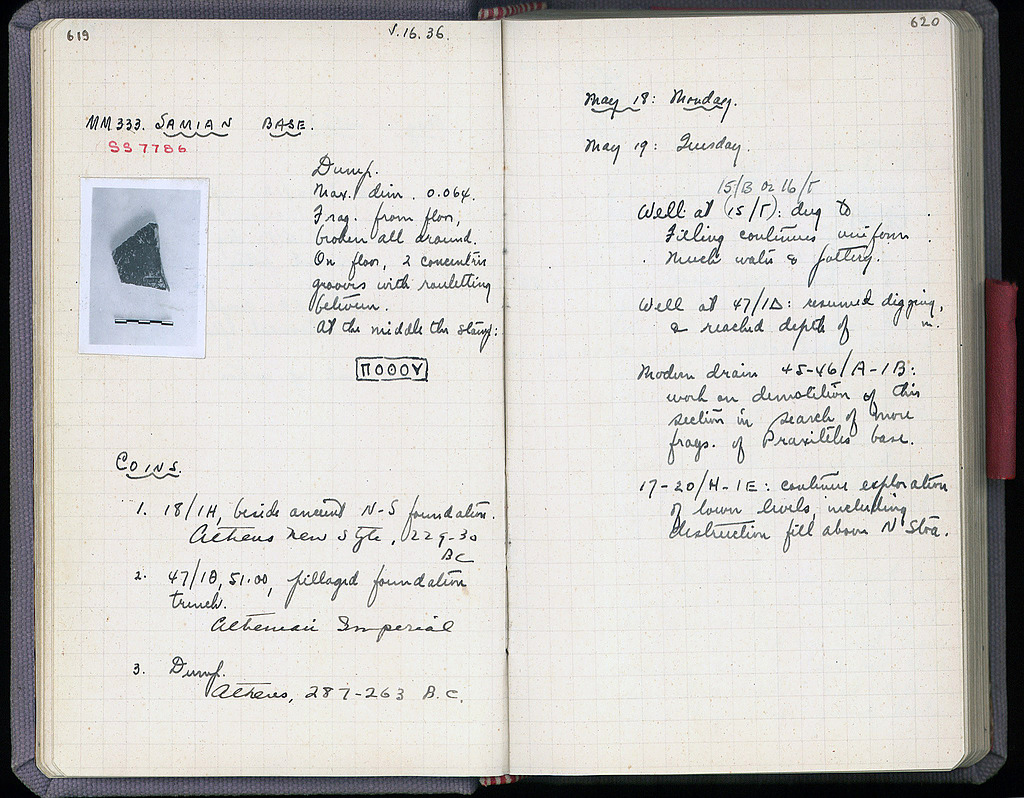 619
V.16.36.
MM333. SAMIAN BASE.
SS7786
Dump.
Max. dim. 0.064.
Frag. from floor,
broken all around.
On floor, 2 concentric
grooves with rouletting
between.
At the middle the stamp:
ΠΟΟΟΥ
COINS.
1. 18/1H, beside ancient N-S foundation.
Athens New Style, 229-30
BC
2. 47/1Θ, 51.00, pillaged foundation
trench.
Athenian Imperial
3. Dump.
Athens, 287-263 B.C.
620
May 18: Monday.
May 19: Tuesday.
15/B or 16/Γ
Well at (15/Γ): dug to
Filling continues uniform.
Much water & pottery.
Well at 47/1Δ: resumed digging,
& reached depth of m.
Modern drain 45-46/A-1B:
work on demolition of this
section in search of more
frags. of Praxiteles base.
17-20/H-1E: continue exploration
of lower levels, including
destruction fill above N Stoa.